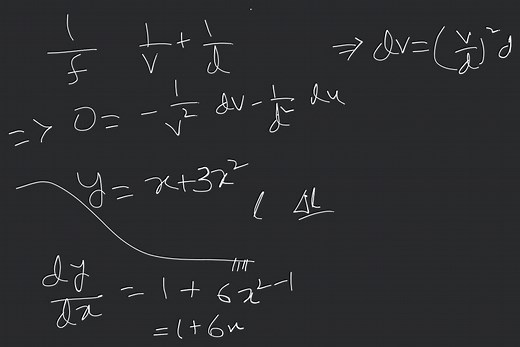 1/f 1/v + 1/d
⇒ dv = (v/d)² d
⇒ 0 = - 1/v² dv - 1/d² du
y = x + 3x²
l Δl
dy/dx = 1 + 6x²⁻¹
= 1 + 6x